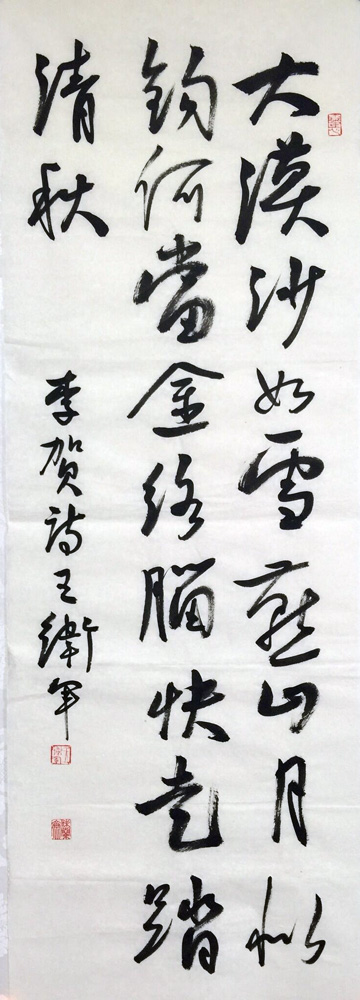 大漠沙如雪燕山月似
鈎何當金络腦快走踏
清秋
李贺诗王衛军